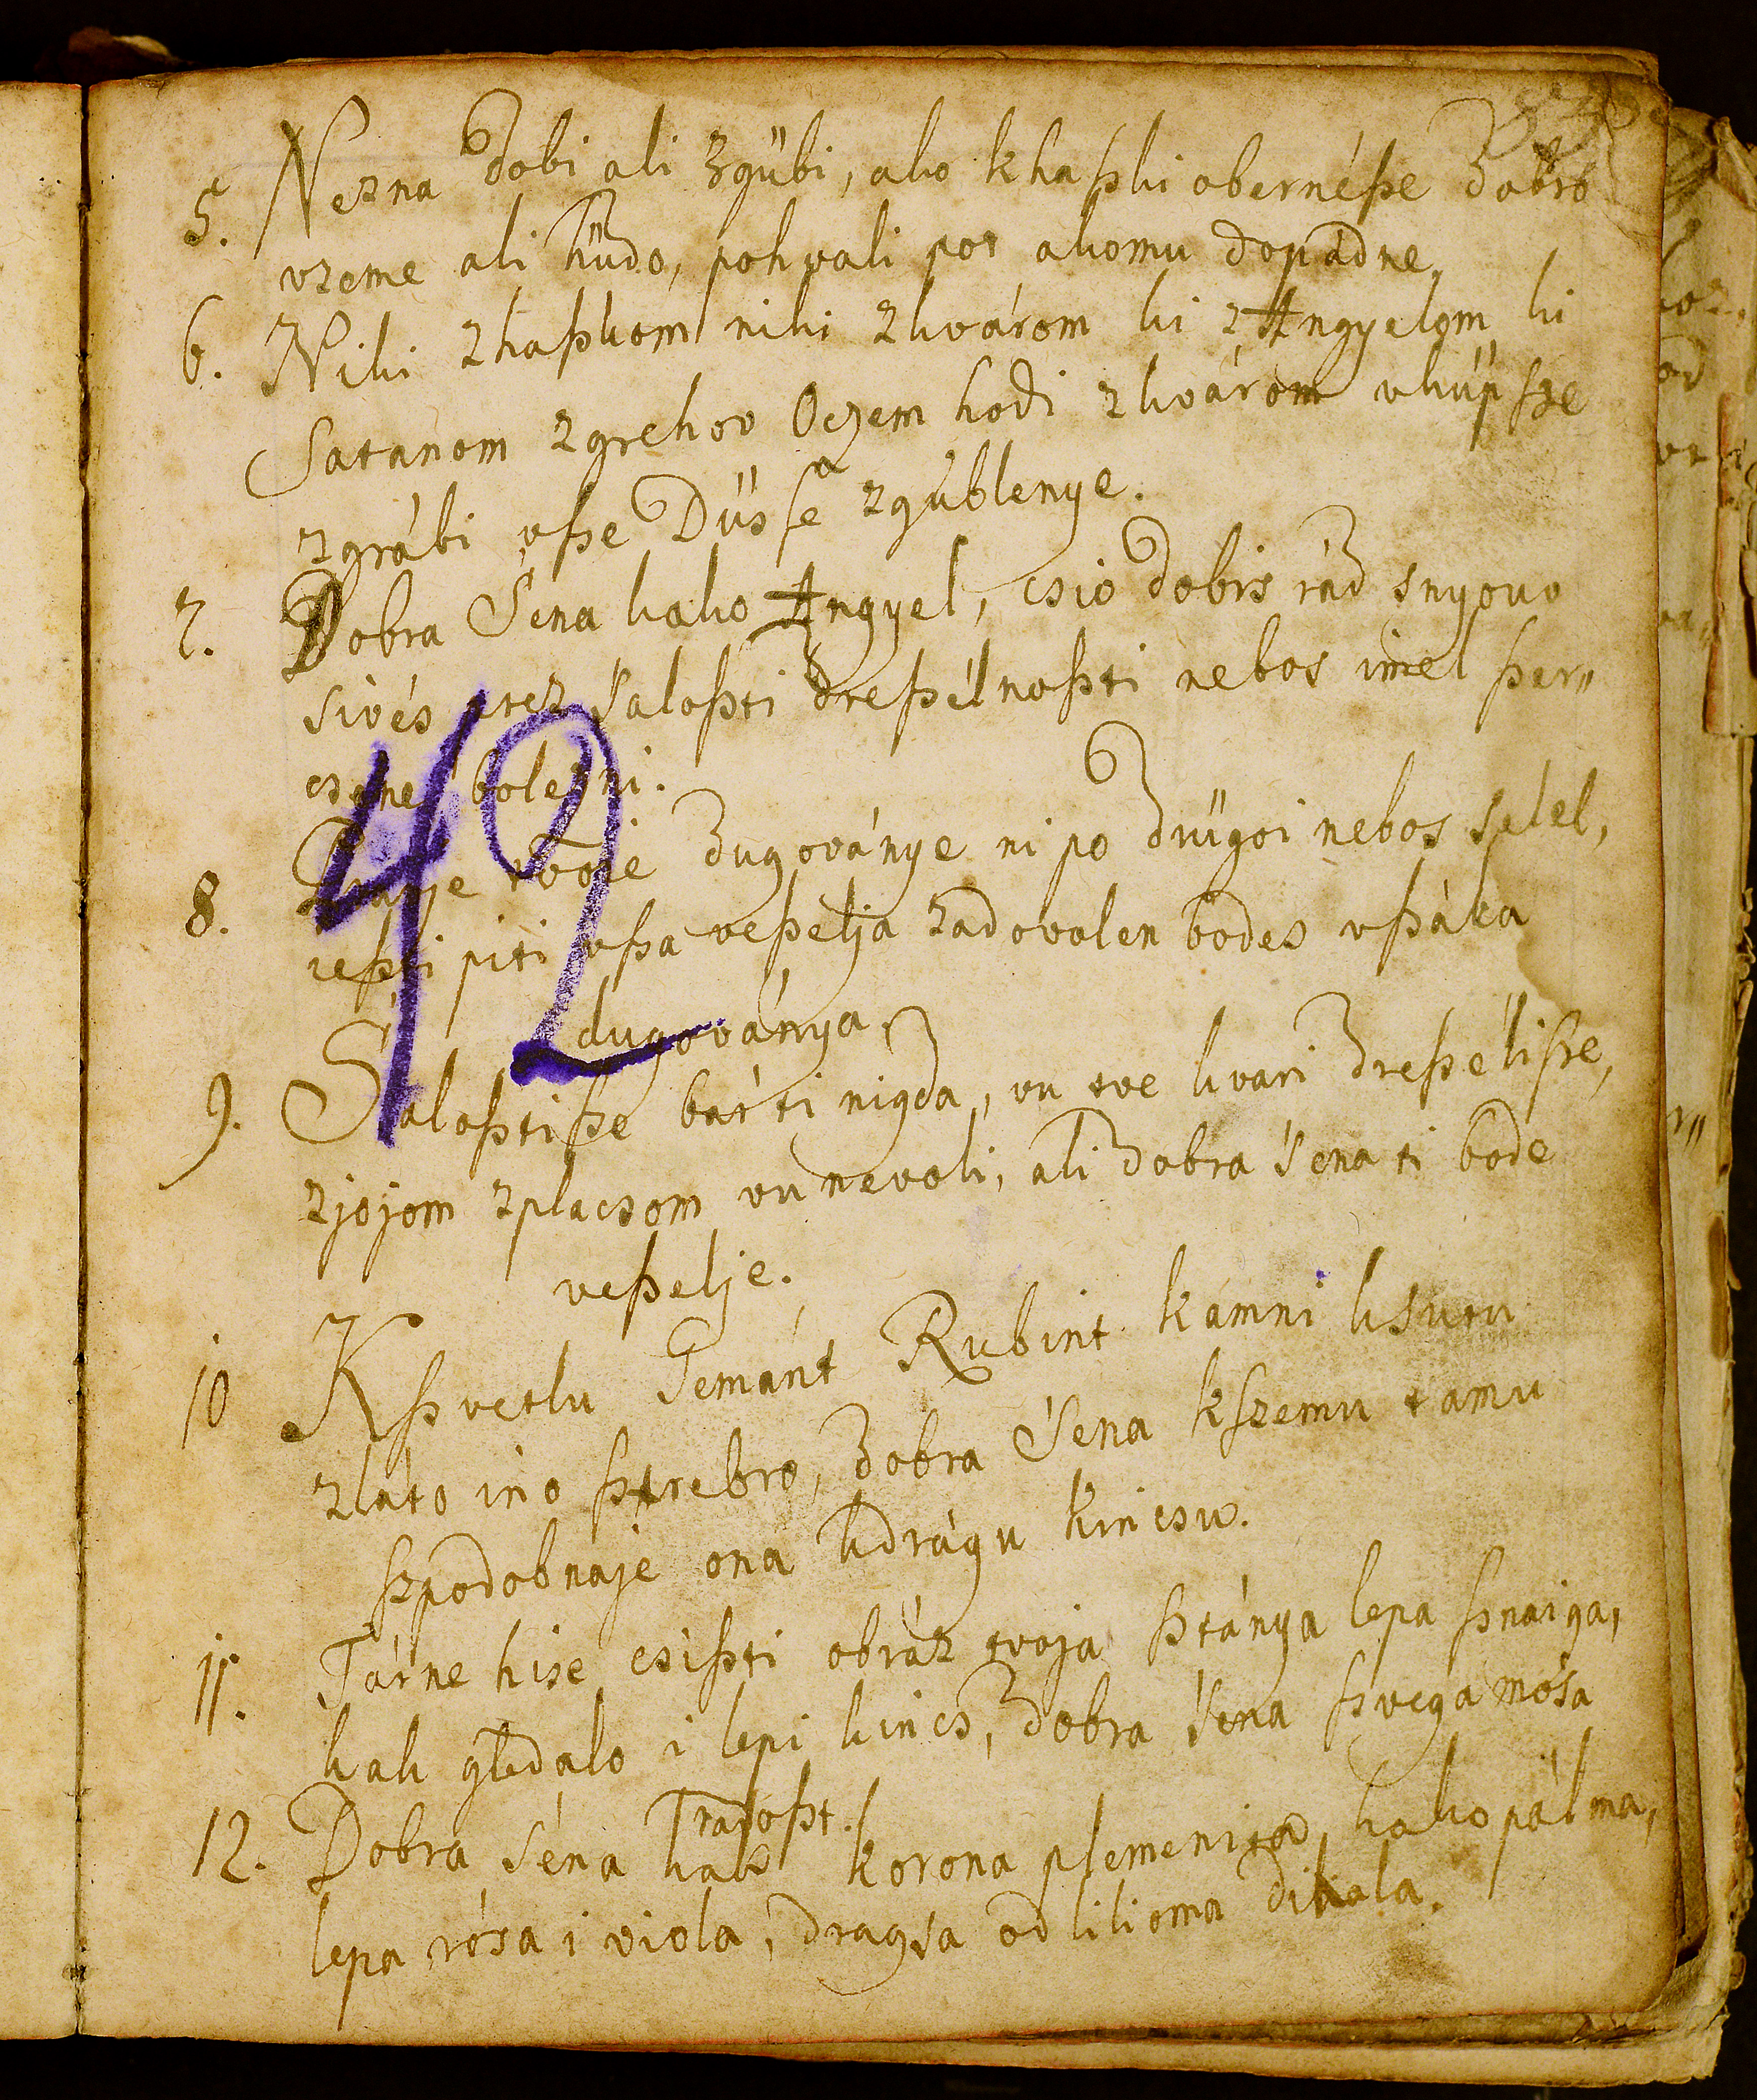 5. Nezna dobi ali zgübi, ako khaßki obernéße dobro
vzeme ali hüdo, pohvali pot akomu dopádne.
6. Niki zhaßkom niki zkvárom ki zAngyelom ki
Satanom zgrehov Oczem hodi zkvárom vküp ſze
zgrábi vße Düsſe zgüblenye.
7. Dobra Sena kako Angyel, csio dobis rád snyouv
sivés prez Saloßti dreßélnoßti nebos imel ßer„
csene bolezni.
8. tvoje dugoványe ni po drügoi nebos selel,
jeßti piti vßa veßelja zadovolen bodes vßáka
dugoványa.
9. Saloßtiße bár ti nigda, vu tve kvari dreßélißße,
zjojom zplacsom vu nevoli, ali dobra Sena ti bode
veßelje.
10 Kßvetlu Gemánt Rubint kámni ksutu
zláto ino ßtrebro, dobra Sena kſzemu tamu
ſzpodobnaje ona kdrágu kincsu.
11. Tárne hise csißti obráz tvoja ßtánya lepa ßnaiga,
kak gledalo i lepi kincs, dobra Sena ſzvega mósa
radoßt.
12. Dobra Séna kak korona plemenita, kako pálma,
lepa rósa i viola, dragsa od lilioma dikala.
42